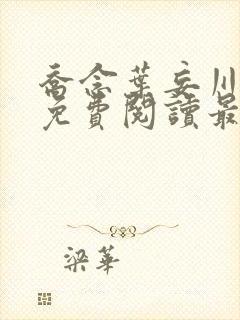 喬念葉妄川
免費閱讀最
梁華